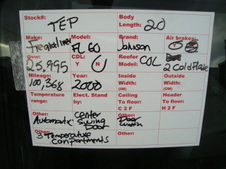 Stock#: TEP Body Length: 20
Make: Freightliner Model: FL 60 Brand: Johnson Air brakes:
Gvw: 25,995 CDL: Y N Reefer Model: COL 2 Cold Plate
Mileage: 100,368 Year: 2000 Inside Width(s): Outside Width:
Temperature range: Elect. Stand by: Ceiling To floor: Header To floor:
C 2 F H 2 F
Other: Automatic Other: Center Swing Door Other: Other:
Other: 3 Temperature Compartments Other: